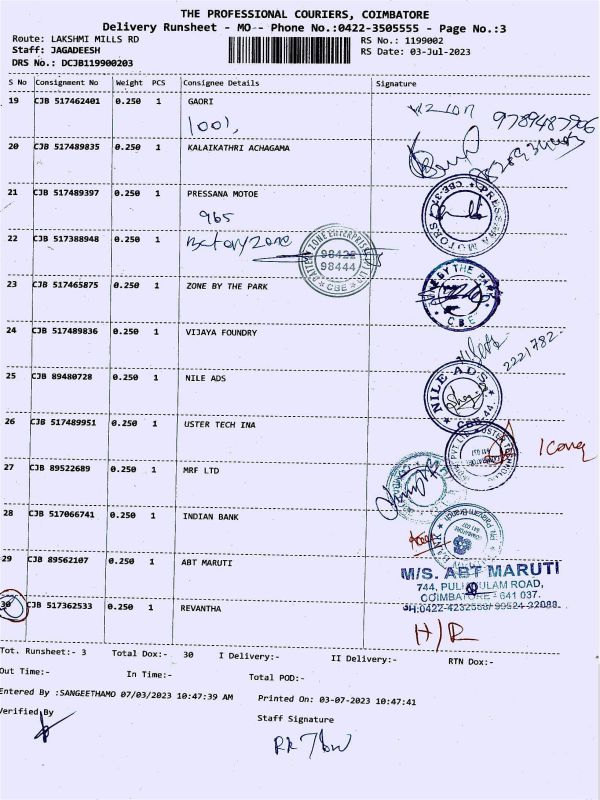 THE PROFESSIONAL COURIERS, COIMBATORE
Delivery Runsheet - MO-- Phone No.:0422-3505555 - Page No.:3
Route: LAKSHMI MILLS RD RS No.: 1199002
Staff: JAGADEESH RS Date: 03-Jul-2023
DRS No.: DCJB119900203
S No Consignment No Weight PCS Consignee Details Signature
19 CJB 517462401 0.250 1 GAORI
1001,
20 CJB 517489835 0.250 1 KALAIKATHRI ACHAGAMA
21 CJB 517489397 0.250 1 PRESSANA MOTOE
965
22 CJB 517388948 0.250 1 Battery Zone
98422
98444
CBE
23 CJB 517465875 0.250 1 ZONE BY THE PARK
C.B.E
24 CJB 517489836 0.250 1 VIJAYA FOUNDRY
2221782
25 CJB 89480728 0.250 1 NILE ADS NILE ADS
26 CJB 517489951 0.250 1 USTER TECH INA
27 CJB 89522689 0.250 1 MRF LTD
28 CJB 517066741 0.250 1 INDIAN BANK
29 CJB 89562107 0.250 1 ABT MARUTI
M/S. ABT MARUTI
744, PULIAKULAM ROAD,
COIMBATORE - 641 037.
30 CJB 517362533 0.250 1 REVANTHA
H/R
Tot. Runsheet:- 3 Total Dox:- 30 I Delivery:- II Delivery:- RTN Dox:-
Out Time:- In Time:- Total POD:-
Entered By :SANGEETHAMO 07/03/2023 10:47:39 AM Printed On: 03-07-2023 10:47:41
Verified By Staff Signature